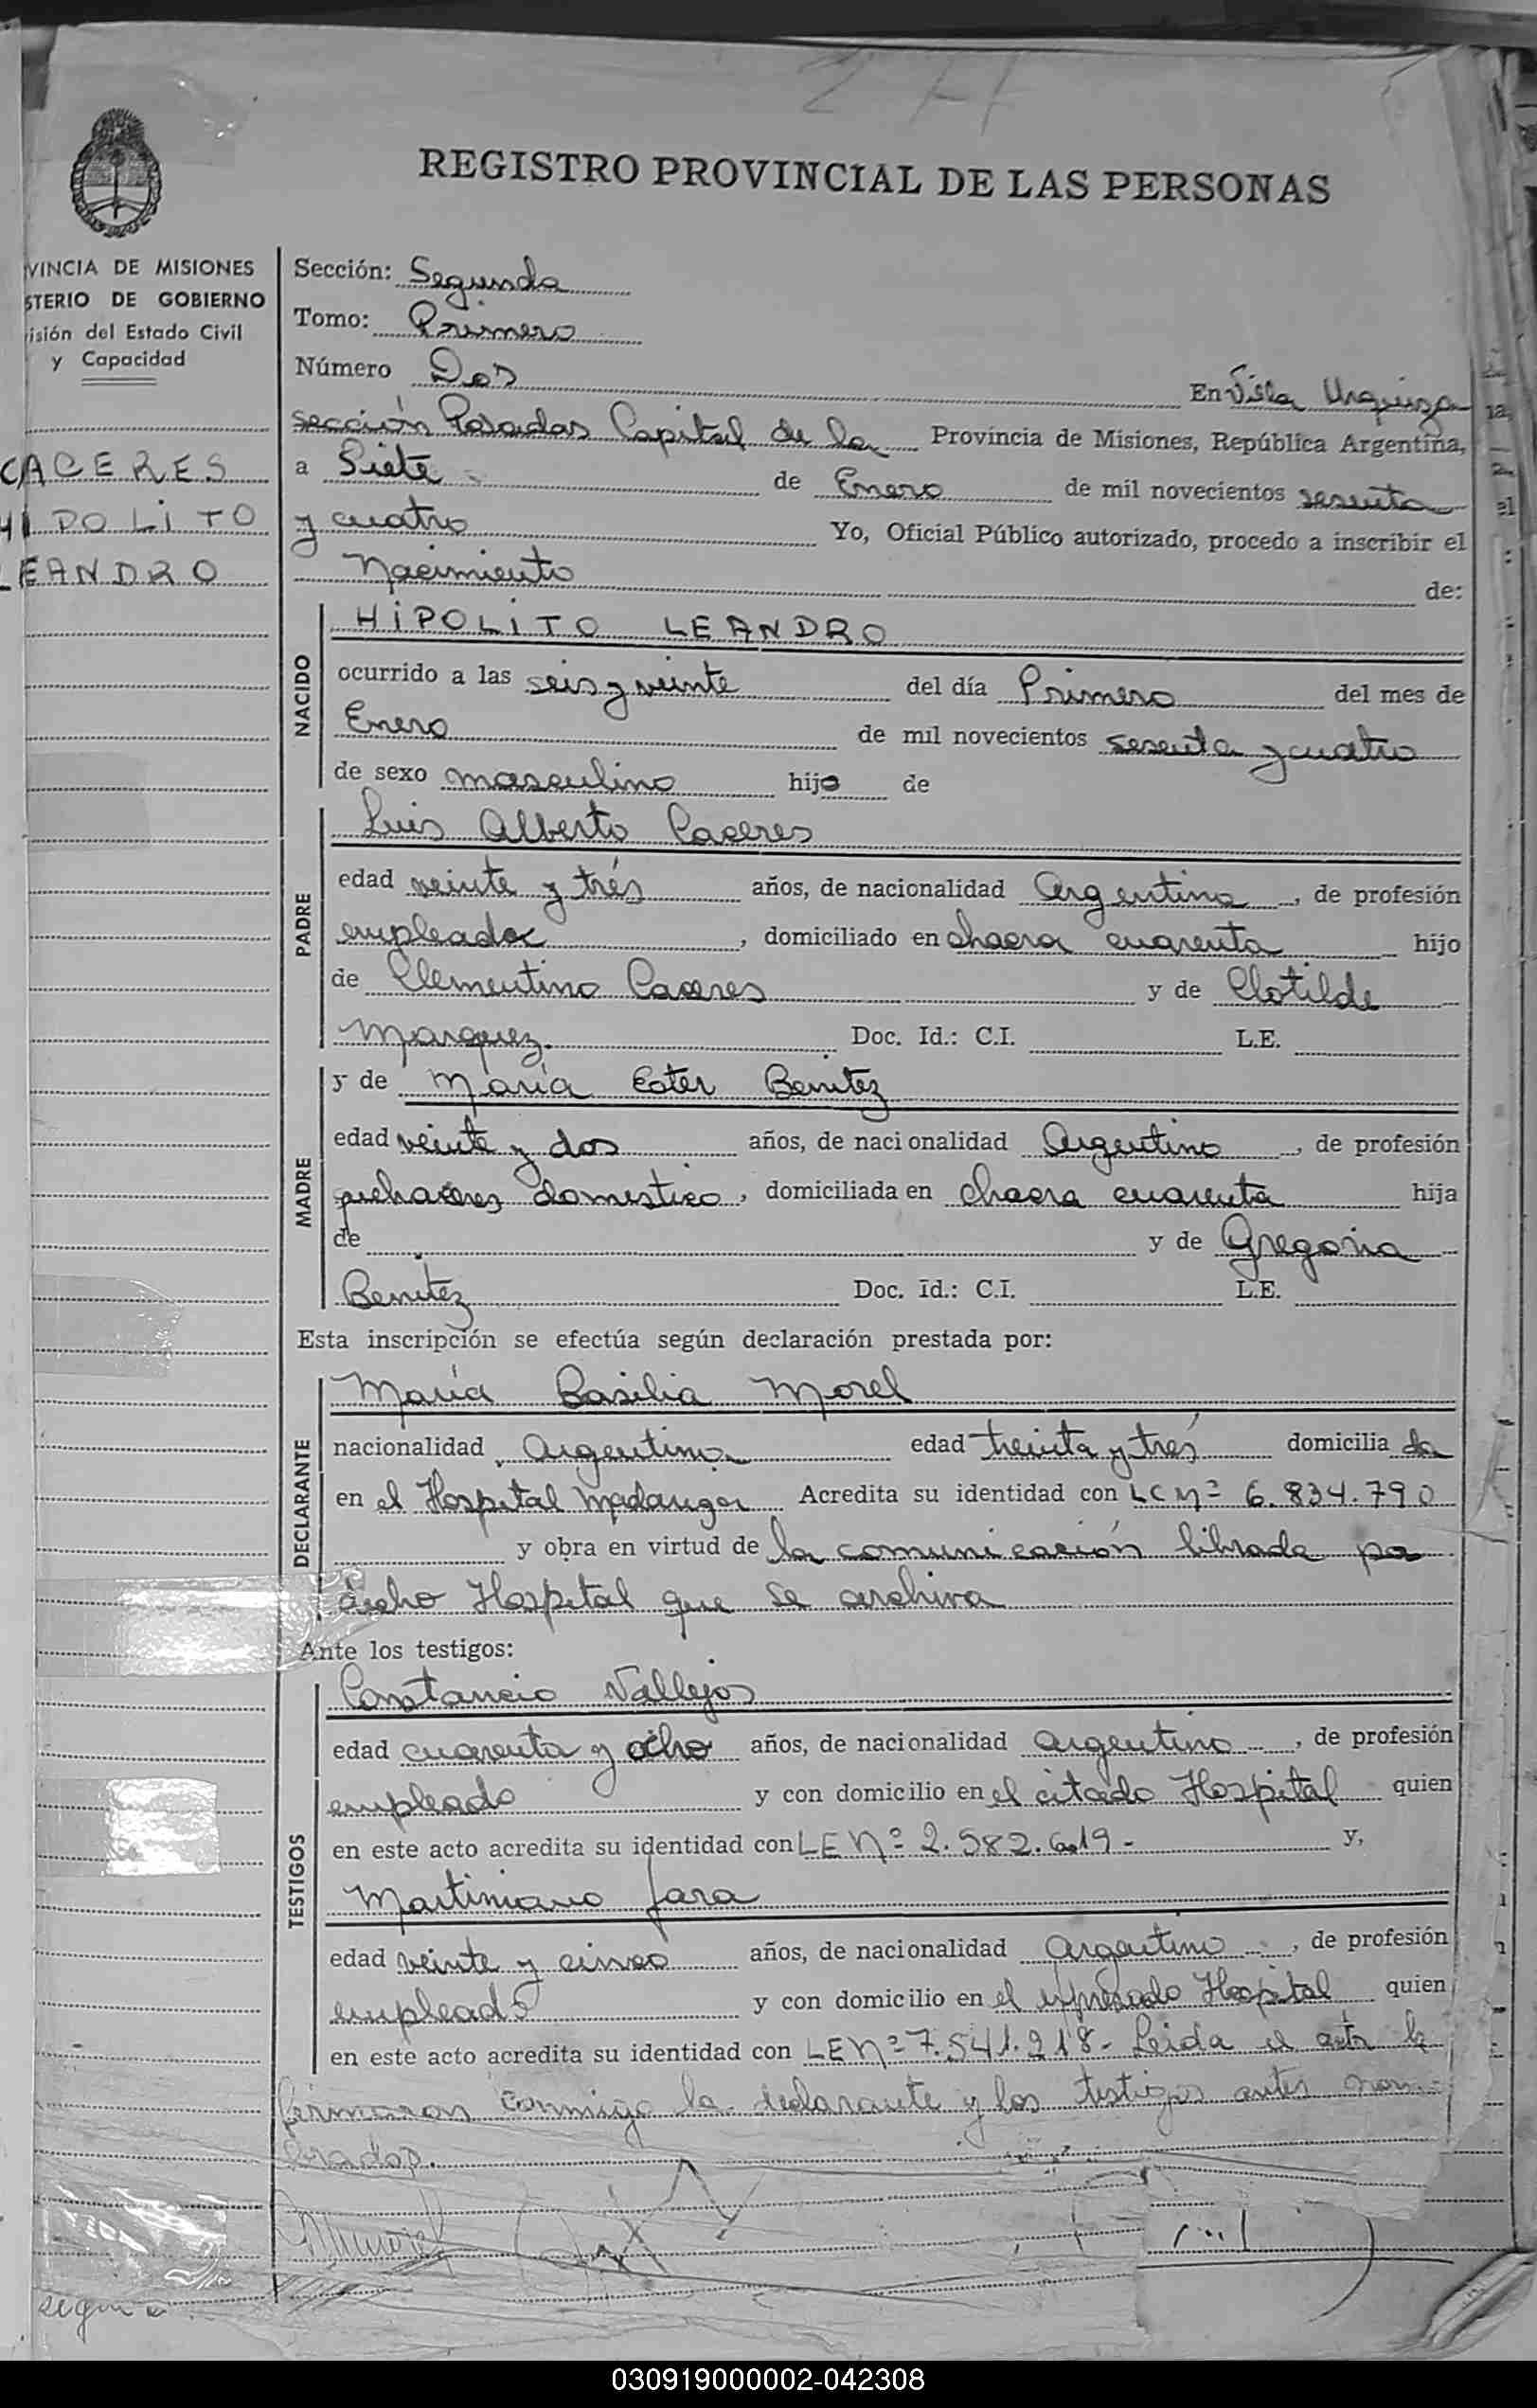 REGISTRO PROVINCIAL DE LAS PERSONAS
VINCIA DE MISIONES
STERIO DE GOBIERNO
isión del Estado Civil
y Capacidad
CACERES
HIPOLITO
LEANDRO
Sección: Segunda
Tomo: Primero
Número Dos
En Villa Urquiza
sección Posadas Capital de la Provincia de Misiones, República Argentina,
a Siete de Enero de mil novecientos sesenta
y cuatro Yo, Oficial Público autorizado, procedo a inscribir el
Nacimiento de:
NACIDO
HIPOLITO LEANDRO
ocurrido a las seis y veinte del día Primero del mes de
Enero de mil novecientos sesenta y cuatro
de sexo masculino hijo de
PADRE
Luis Alberto Caceres
edad veinte y trés años, de nacionalidad Argentina, de profesión
empleado, domiciliado en chacra cuarenta hijo
de Clementino Caceres y de Clotilde
Marquez. Doc. Id.: C.I. L.E.
MADRE
y de María Ester Benitez
edad veinte y dos años, de nacionalidad Argentino, de profesión
quehaceres domestico, domiciliada en chacra cuarenta hija
de y de Gregoria
Benitez Doc. Id.: C.I. L.E.
Esta inscripción se efectúa según declaración prestada por:
DECLARANTE
María Basilia Morel
nacionalidad Argentina edad treinta y tres domicilia da
en el Hospital Madariaga Acredita su identidad con LC Nº 6.834.790
y obra en virtud de la comunicación librada por
dicho Hospital que se archiva
Ante los testigos:
TESTIGOS
Constancio Vallejos
edad cuarenta y ocho años, de nacionalidad Argentino, de profesión
empleado y con domicilio en el citado Hospital quien
en este acto acredita su identidad con LE Nº 2.582.619- y,
Martiniano Jara
edad veinte y cinco años, de nacionalidad Argentino, de profesión
empleado y con domicilio en el expresado Hospital quien
en este acto acredita su identidad con LE Nº 7.541.218- Leida el acta la
firmaron conmigo la declarante y los testigos antes nom-
brados.
030919000002-042308